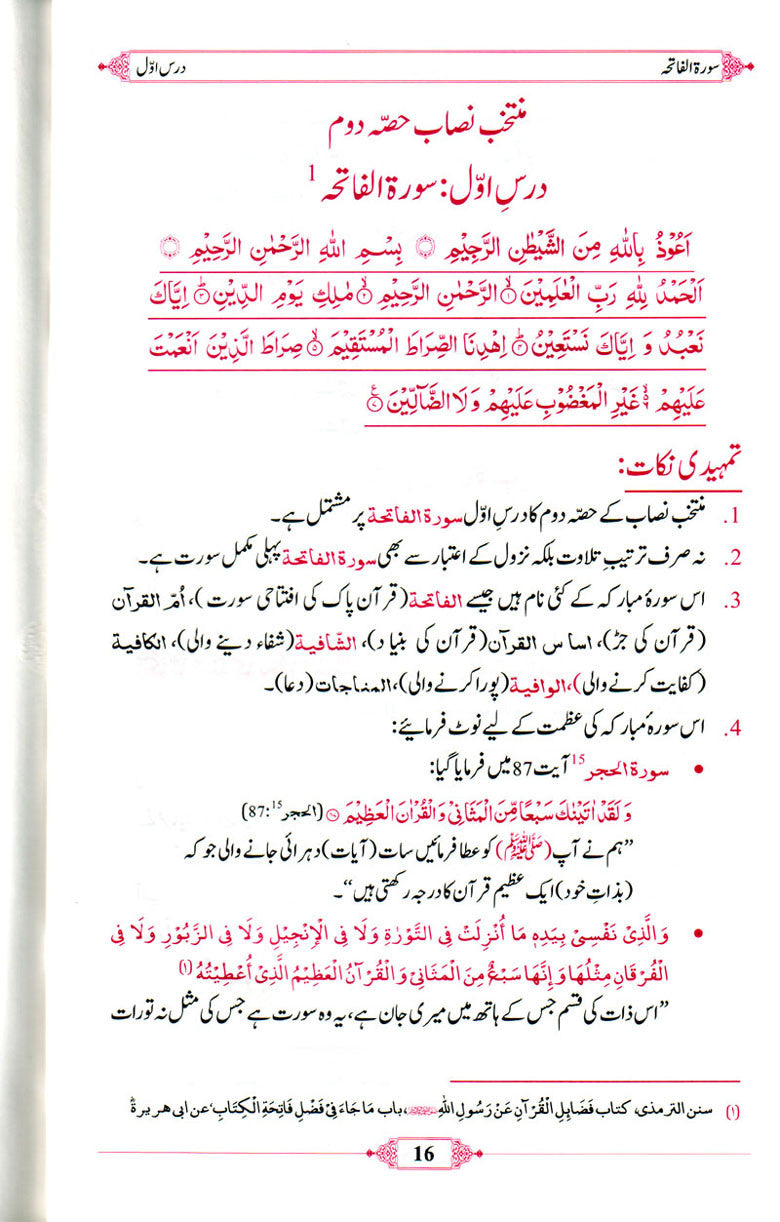 سورۃ الفاتحہ
درس اوّل
منتخب نصاب حصّہ دوم
درسِ اوّل: سورۃ الفاتحہ 1
اَعُوْذُ بِاللّٰهِ مِنَ الشَّيْطٰنِ الرَّجِيْمِ ۝ بِسْمِ اللّٰهِ الرَّحْمٰنِ الرَّحِيْمِ ۝
اَلْحَمْدُ لِلّٰهِ رَبِّ الْعٰلَمِيْنَ ۙ۝۱ الرَّحْمٰنِ الرَّحِيْمِ ۙ۝۲ مٰلِكِ يَوْمِ الدِّيْنِ ؕ۝۳ اِيَّاكَ
نَعْبُدُ وَ اِيَّاكَ نَسْتَعِيْنُ ؕ۝۴ اِهْدِنَا الصِّرَاطَ الْمُسْتَقِيْمَ ۙ۝۵ صِرَاطَ الَّذِيْنَ اَنْعَمْتَ
عَلَيْهِمْ ۙ۬۝۶ غَيْرِ الْمَغْضُوْبِ عَلَيْهِمْ وَلَا الضَّآلِّيْنَ ۝۷
تمہیدی نکات:
1. منتخب نصاب کے حصہ دوم کا درس اوّل سورۃ الفاتحۃ پر مشتمل ہے۔
2. نہ صرف ترتیبِ تلاوت بلکہ نزول کے اعتبار سے بھی سورۃ الفاتحۃ پہلی مکمل سورت ہے۔
3. اس سورۂ مبارکہ کے کئی نام ہیں جیسے الفاتحۃ (قرآن پاک کی افتتاحی سورت)، اُمّ القرآن
(قرآن کی جڑ)، اساس القرآن (قرآن کی بنیاد)، الشّافیۃ (شفاء دینے والی)، الکافیۃ
(کفایت کرنے والی)، الوافیۃ (پورا کرنے والی)، المناجات (دعا)۔
4. اس سورۂ مبارکہ کی عظمت کے لیے نوٹ فرمائیے:
• سورۃ الحجر 15 آیت 87 میں فرمایا گیا:
وَ لَقَدْ اٰتَيْنٰكَ سَبْعًا مِّنَ الْمَثَانِيْ وَ الْقُرْاٰنَ الْعَظِيْمَ ۝۸۷ (الحجر 15: 87)
”ہم نے آپ (ﷺ) کو عطا فرمائیں سات (آیات) دہرائی جانے والی جو کہ
(بذاتِ خود) ایک عظیم قرآن کا درجہ رکھتی ہیں“۔
• وَالَّذِيْ نَفْسِيْ بِيَدِهٖ مَا أُنْزِلَتْ فِي التَّوْرٰةِ وَلَا فِي الْاِنْجِيْلِ وَلَا فِي الزَّبُوْرِ وَلَا فِي
الْفُرْقَانِ مِثْلُهَا وَ إِنَّهَا سَبْعٌ مِنَ الْمَثَانِيْ وَ الْقُرْآنُ الْعَظِيْمُ الَّذِيْ أُعْطِيْتُهُ (۱)
”اس ذات کی قسم جس کے ہاتھ میں میری جان ہے، یہ وہ سورت ہے جس کی مثل نہ تورات
(۱) سنن الترمذی، کتاب فَضَایِلِ الْقُرْآنِ عَنْ رَسُوْلِ اللّٰهِ ﷺ، باب مَا جَاءَ فِيْ فَضْلِ فَاتِحَةِ الْكِتَابِ، عن ابی هریرةؓ
16